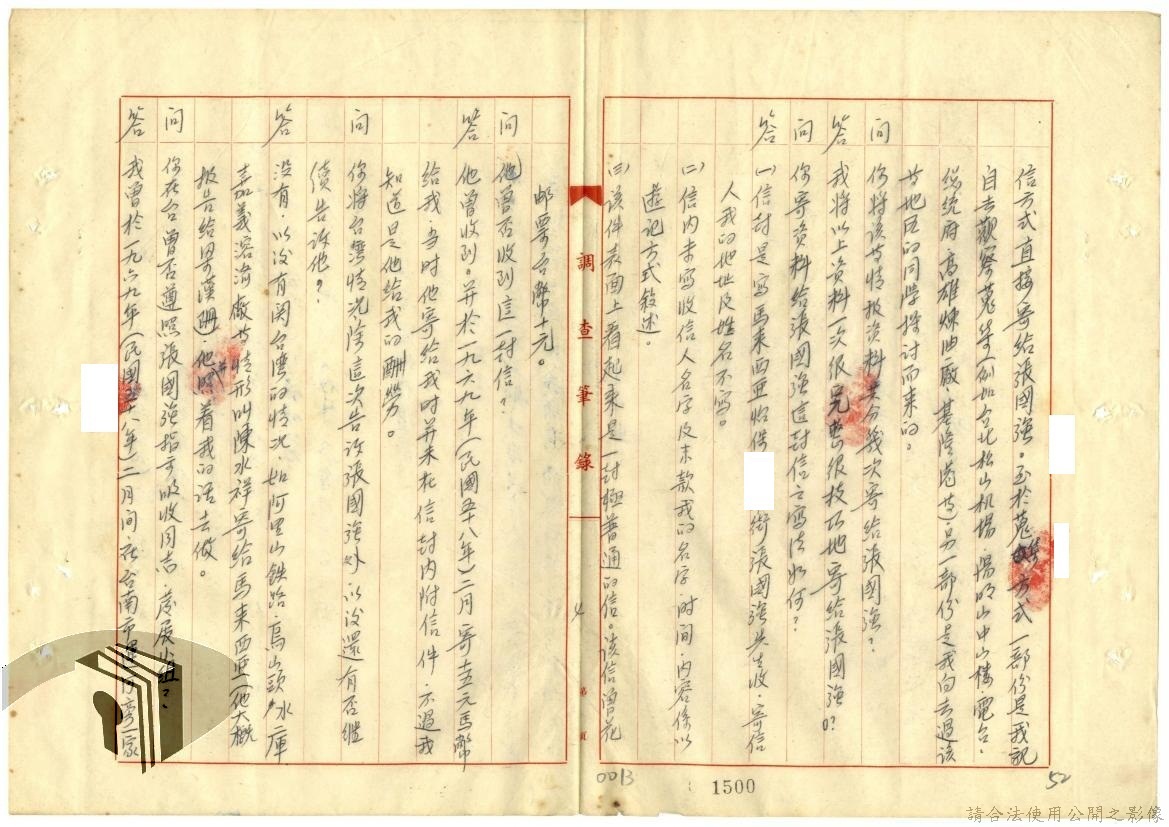 信方式直接寄给張國強。至於蒐集方式一部份是我親
自去觀察蒐集(例如台北松山机場、陽明山中山樓、電台、
總統府、高雄煉油廠、基隆港等)另一部份是我向去過該
等地區的同學探討而来的。
问 你將該等情报资料共分幾次寄给張國強?
答 我將以上资料一次很完整很技巧地寄给張國強。
问 你寄资料给張國強這封信之寫法如何?
答 (一)信封是寫馬来西亚怡保 街張國強先生收,寄信
人我的地址及姓名不寫。
(二)信内未寫收信人名字及末款我的名字、时间、内容係以
遊记方式敘述。
(三)该件表面上看起来是一封極普通的信。该信曾花
邮票台幣十元。
问 他曾否收到這一封信?
答 他曾收到。并於一九六九年(民國五十八年)二月寄十五元馬幣
给我,当时他寄给我时并未在信封内附信件 不過我
知道是他给我的酬劳。
问 你將台灣情况除這次告诉張國強外,以後還有否继
續告诉他?
答 没有,以後有関台灣的情况,如阿里山鉄路、烏山頭水庫
嘉義溶剂廠等情形叫陳水祥寄给馬来西亚(他大概
报告给 漢 )他 着我的话去做。
问 你在台曾否遵照張國強指示吸收同志、发展小組?
答 我曾於一九六九年(民國五十八年)二月间,在台南市運河旁一家
調查筆錄
第 頁
0013
1500
52
請合法使用公開之影像